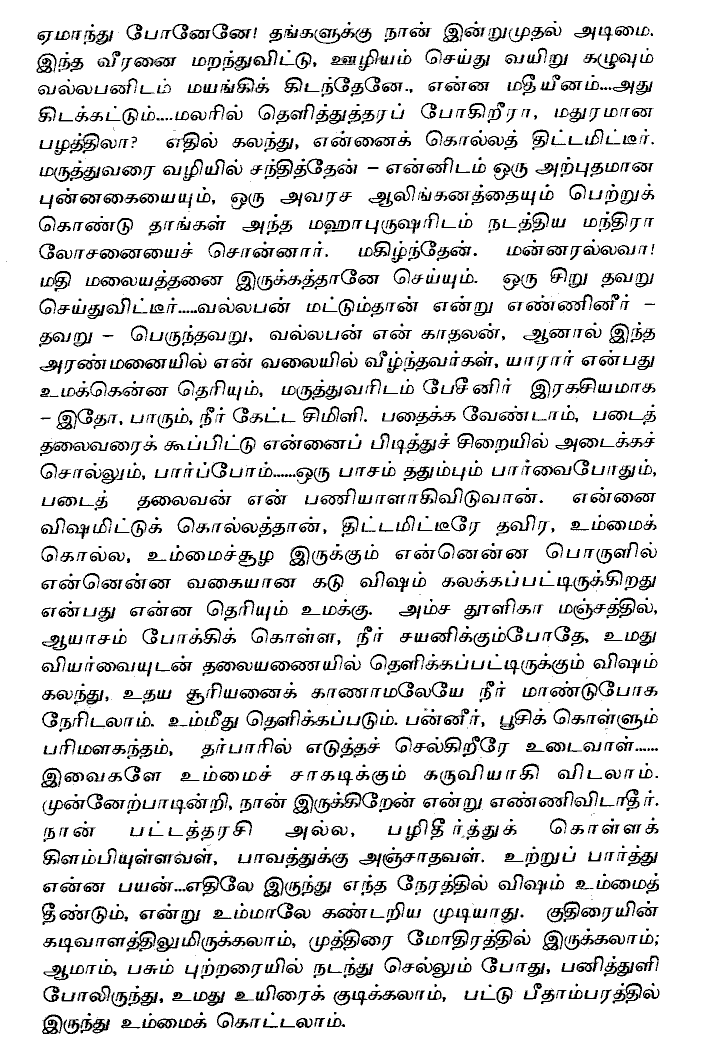 ஏமாந்து போனேனே! தங்களுக்கு நான் இன்றுமுதல் அடிமை.
இந்த வீரனை மறந்துவிட்டு, ஊழியம் செய்து வயிறு கழுவும்
வல்லபனிடம் மயங்கிக் கிடந்தேனே., என்ன மதியீனம்...அது
கிடக்கட்டும்....மலரில் தெளித்துத்தரப் போகிறீரா, மதுரமான
பழத்திலா? எதில் கலந்து, என்னைக் கொல்லத் திட்டமிட்டீர்.
மருத்துவரை வழியில் சந்தித்தேன் – என்னிடம் ஒரு அற்புதமான
புன்னகையையும், ஒரு அவரச ஆலிங்கனத்தையும் பெற்றுக்
கொண்டு தாங்கள் அந்த மஹாபுருஷரிடம் நடத்திய மந்திரா
லோசனையைச் சொன்னார். மகிழ்ந்தேன். மன்னரல்லவா!
மதி மலையத்தனை இருக்கத்தானே செய்யும். ஒரு சிறு தவறு
செய்துவிட்டீர்.....வல்லபன் மட்டும்தான் என்று எண்ணினீர் –
தவறு – பெருந்தவறு, வல்லபன் என் காதலன், ஆனால் இந்த
அரண்மனையில் என் வலையில் வீழ்ந்தவர்கள், யாரார் என்பது
உமக்கென்ன தெரியும், மருத்துவரிடம் பேசினீர் இரகசியமாக
– இதோ, பாரும், நீர் கேட்ட சிமிளி. பதைக்க வேண்டாம், படைத்
தலைவரைக் கூப்பிட்டு என்னைப் பிடித்துச் சிறையில் அடைக்கச்
சொல்லும், பார்ப்போம்......ஒரு பாசம் ததும்பும் பார்வைபோதும்,
படைத் தலைவன் என் பணியாளாகிவிடுவான். என்னை
விஷமிட்டுக் கொல்லத்தான், திட்டமிட்டீரே தவிர, உம்மைக்
கொல்ல, உம்மைச்சூழ இருக்கும் என்னென்ன பொருளில்
என்னென்ன வகையான கடு விஷம் கலக்கப்பட்டிருக்கிறது
என்பது என்ன தெரியும் உமக்கு. அம்ச தூளிகா மஞ்சத்தில்,
ஆயாசம் போக்கிக் கொள்ள, நீர் சயனிக்கும்போதே, உமது
வியர்வையுடன் தலையணையில் தெளிக்கப்பட்டிருக்கும் விஷம்
கலந்து, உதய சூரியனைக் காணாமலேயே நீர் மாண்டுபோக
நேரிடலாம். உம்மீது தெளிக்கப்படும். பன்னீர், பூசிக் கொள்ளும்
பரிமளகந்தம், தர்பாரில் எடுத்தச் செல்கிறீரே உடைவாள்......
இவைகளே உம்மைச் சாகடிக்கும் கருவியாகி விடலாம்.
முன்னேற்பாடின்றி, நான் இருக்கிறேன் என்று எண்ணிவிடாதீர்.
நான் பட்டத்தரசி அல்ல, பழிதீர்த்துக் கொள்ளக்
கிளம்பியுள்ளவள், பாவத்துக்கு அஞ்சாதவள். உற்றுப் பார்த்து
என்ன பயன்...எதிலே இருந்து எந்த நேரத்தில் விஷம் உம்மைத்
தீண்டும், என்று உம்மாலே கண்டறிய முடியாது. குதிரையின்
கடிவாளத்திலுமிருக்கலாம், முத்திரை மோதிரத்தில் இருக்கலாம்;
ஆமாம், பசும் புற்றரையில் நடந்து செல்லும் போது, பனித்துளி
போலிருந்து, உமது உயிரைக் குடிக்கலாம், பட்டு பீதாம்பரத்தில்
இருந்து உம்மைக் கொட்டலாம்.